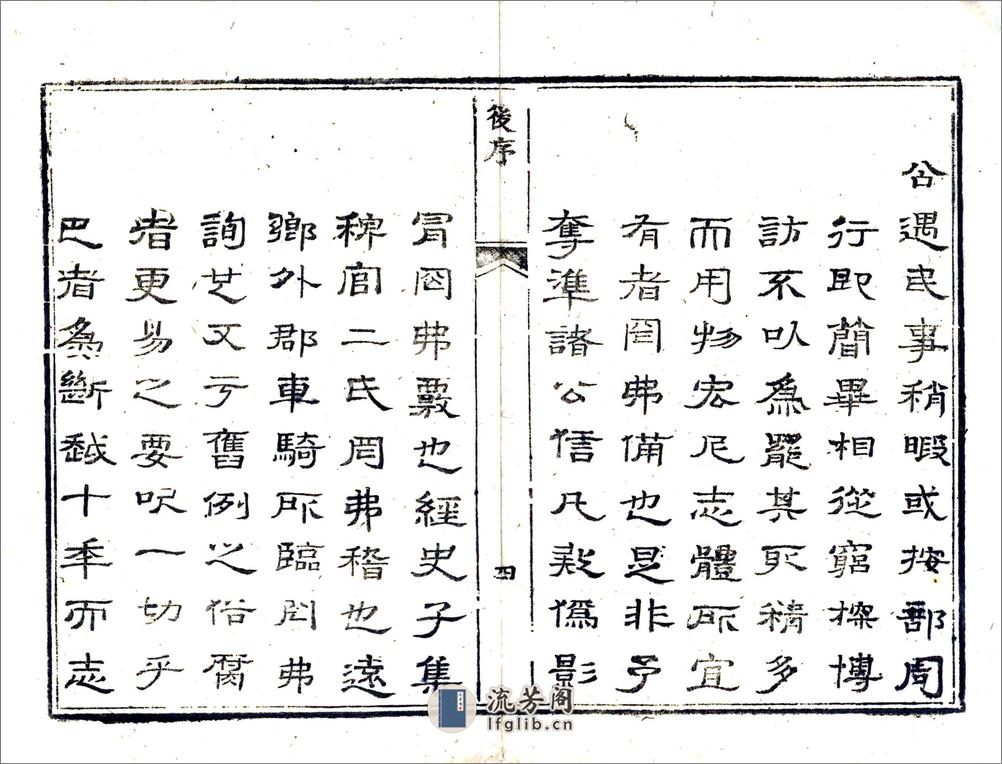 公遇民事稍暇或按部周
行即簡畢相從窮探博
訪不以爲罷其取精多
而用物宏凡志體所宜
有者罔弗備也是非予
奪準諸公信凡欵僞影
後序
四
冐罔弗覈也經史子集
稗官二氏罔弗稽也遠
鄉外郡車騎所臨罔弗
詢也又于舊例之俗腐
者更易之要以一切乎
巴者爲斷越十年而志
流芳阁
lfglib.cn